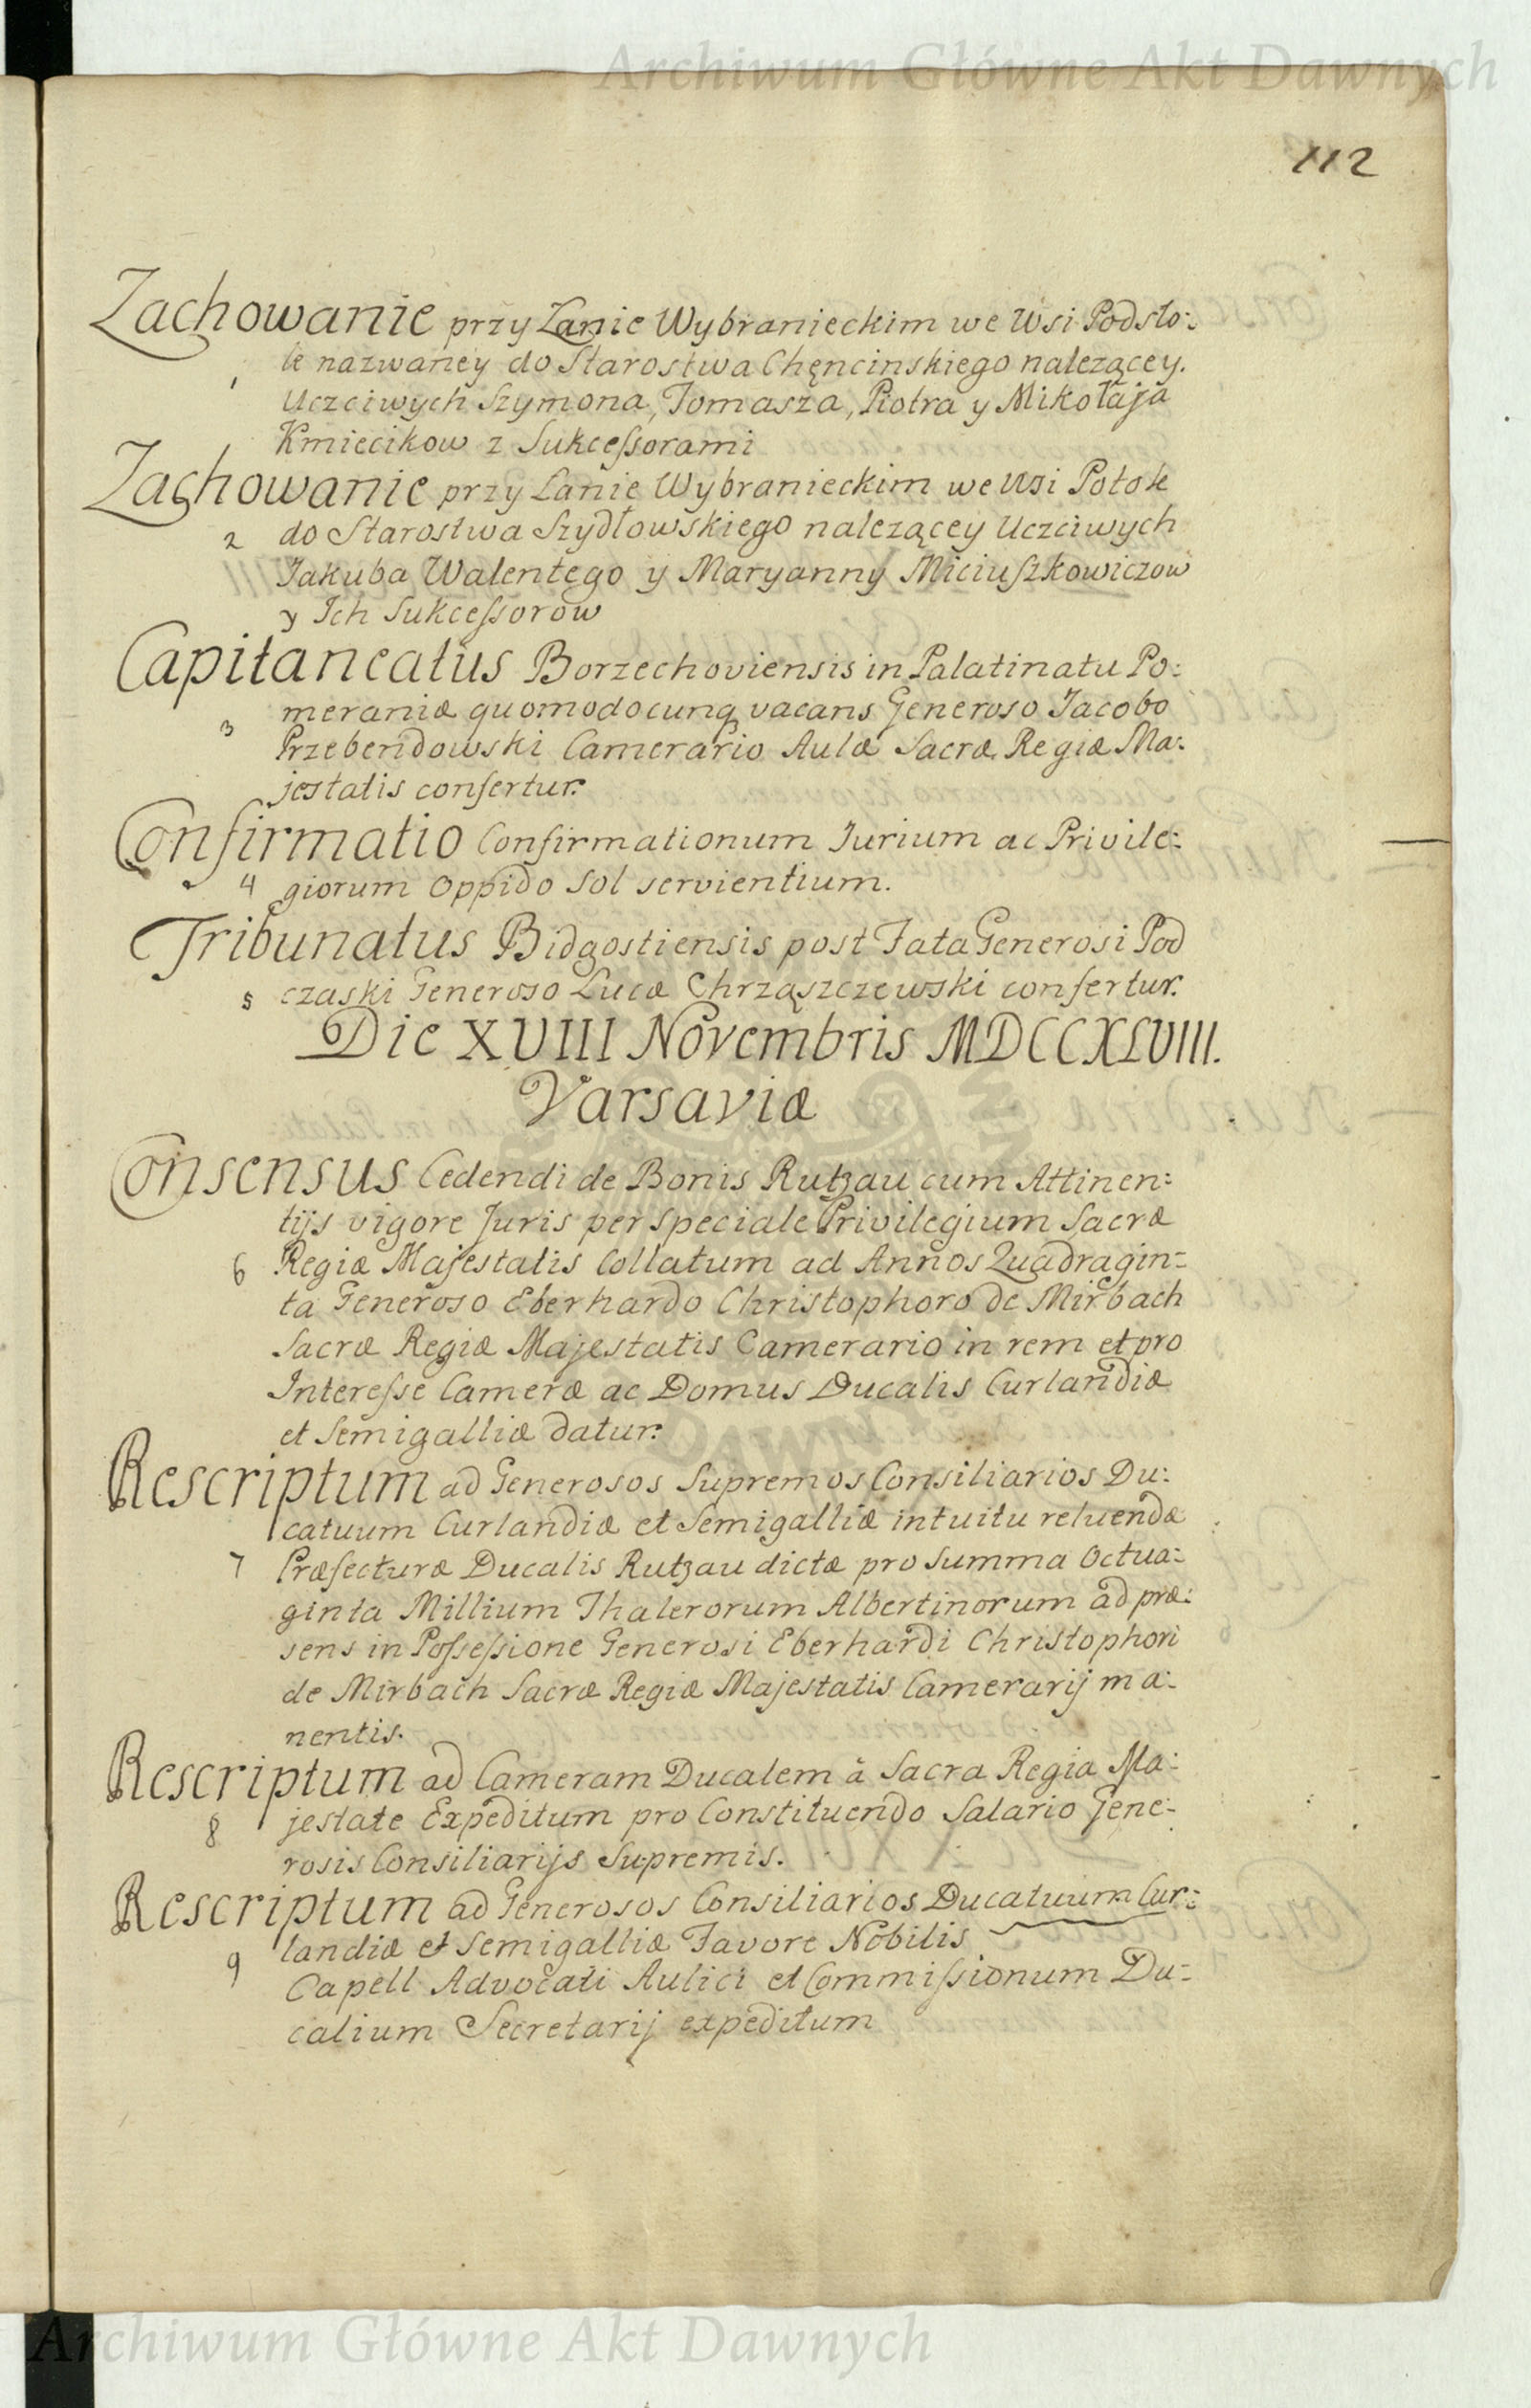 Archiwum Główne Akt Dawnych
112
Zachowanie przy Łanie Wybranieckim we Wsi Podsto:
le nazwaney do Starostwa Chęncinskiego nalezącey.
1 Uczciwych Szymona, Tomasza, Piotra y Mikołaja
Kmiecikow z Sukcessorami
Zachowanie przy Łanie Wybranieckim we Wsi Potok
2 do Starostwa Szydłowskiego nalezącey Uczciwych
Jakuba Walentego y Maryanny Miciuszkowiczow
y Ich Sukcessorow
Capitaneatus Borzechoviensis in Palatinatu Po:
meraniæ quomodocunq vacans Generoso Jacobo
3 Przebendowski Camerario Aulæ Sacræ Regiæ Ma:
jestatis confertur.
Confirmatio Confirmationum Jurium ac Privile:
4 giorum Oppido Sol servientium.
Tribunatus Bidgostiensis post Fata Generosi Pod
5 czaski Generoso Lucæ Chrząszczewski confertur.
Die XVIII Novembris MDCCXLVIII.
Varsaviæ
Consensus Cedendi de Bonis Rutzau cum Attinen:
tijs vigore Juris per Speciale Privilegium Sacræ
6 Regiæ Majestatis Collatum ad Annos Quadragin:
ta Generoso Eberhardo Christophoro de Mirbach
Sacræ Regiæ Majestatis Camerario in rem et pro
Interesse Cameræ ac Domus Ducalis Curlandiæ
et Semigalliæ datur.
Rescriptum ad Generosos Supremos Consiliarios Du:
catuum Curlandiæ et Semigalliæ intuitu reluendæ
7 Præfecturæ Ducalis Rutzau dictæ pro Summa Octua:
ginta Millium Thalerorum Albertinorum ad præ:
sens in Possessione Generosi Eberhardi Christophori
de Mirbach Sacræ Regiæ Majestatis Camerarij ma:
nentis.
Rescriptum ad Cameram Ducalem à Sacra Regia Ma:
8 jestate Expeditum pro Constituendo Salario Gene:
rosis Consiliarijs Supremis.
Rescriptum ad Generosos Consiliarios Ducatuum Cur:
9 landiæ et Semigalliæ Favore Nobilis
Capell Advocati Aulici et Commissionum Du:
calium Secretarij expeditum
Archiwum Główne Akt Dawnych